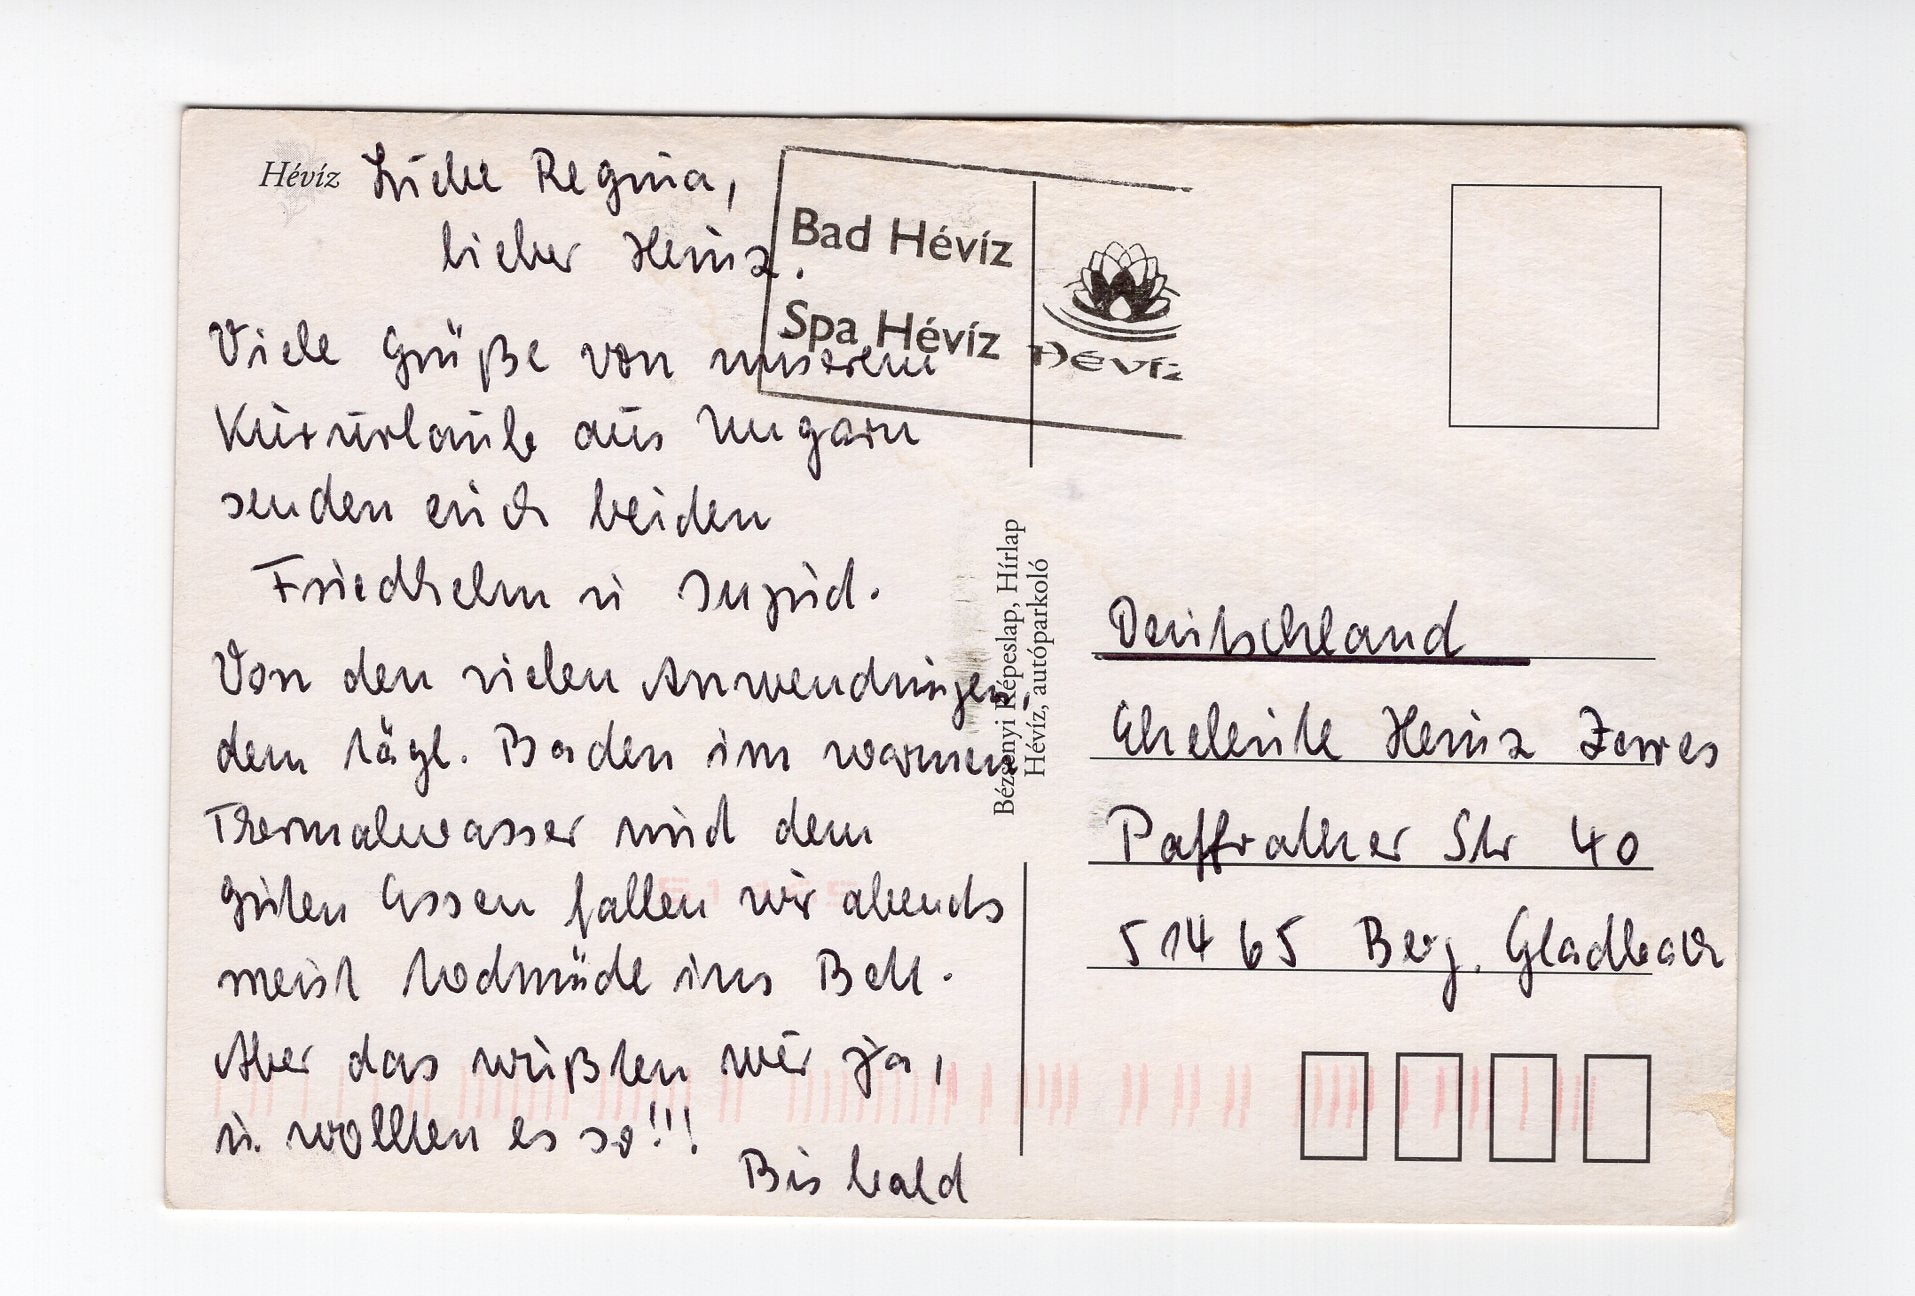 Hévíz
Liebe Regina,
lieber Heinz.
Viele Grüße von unserem
Kururlaube aus Ungarn
senden euch beiden
Friedhelm u Ingrid.
Von den vielen Anwendungen,
dem tägl. Baden im warmen
Thermalwasser und dem
guten Essen fallen wir abends
meist todmüde ins Bett.
Aber das wußten wir ja,
u. wollten es so!!!
Bis bald
Bad Hévíz
Spa Hévíz
Hévíz
Bézsenyi Képeslap, Hírlap
Hévíz, autóparkoló
Deutschland
Eheleute Heinz Zerres
Paffrather Str 40
51465 Berg. Gladbach